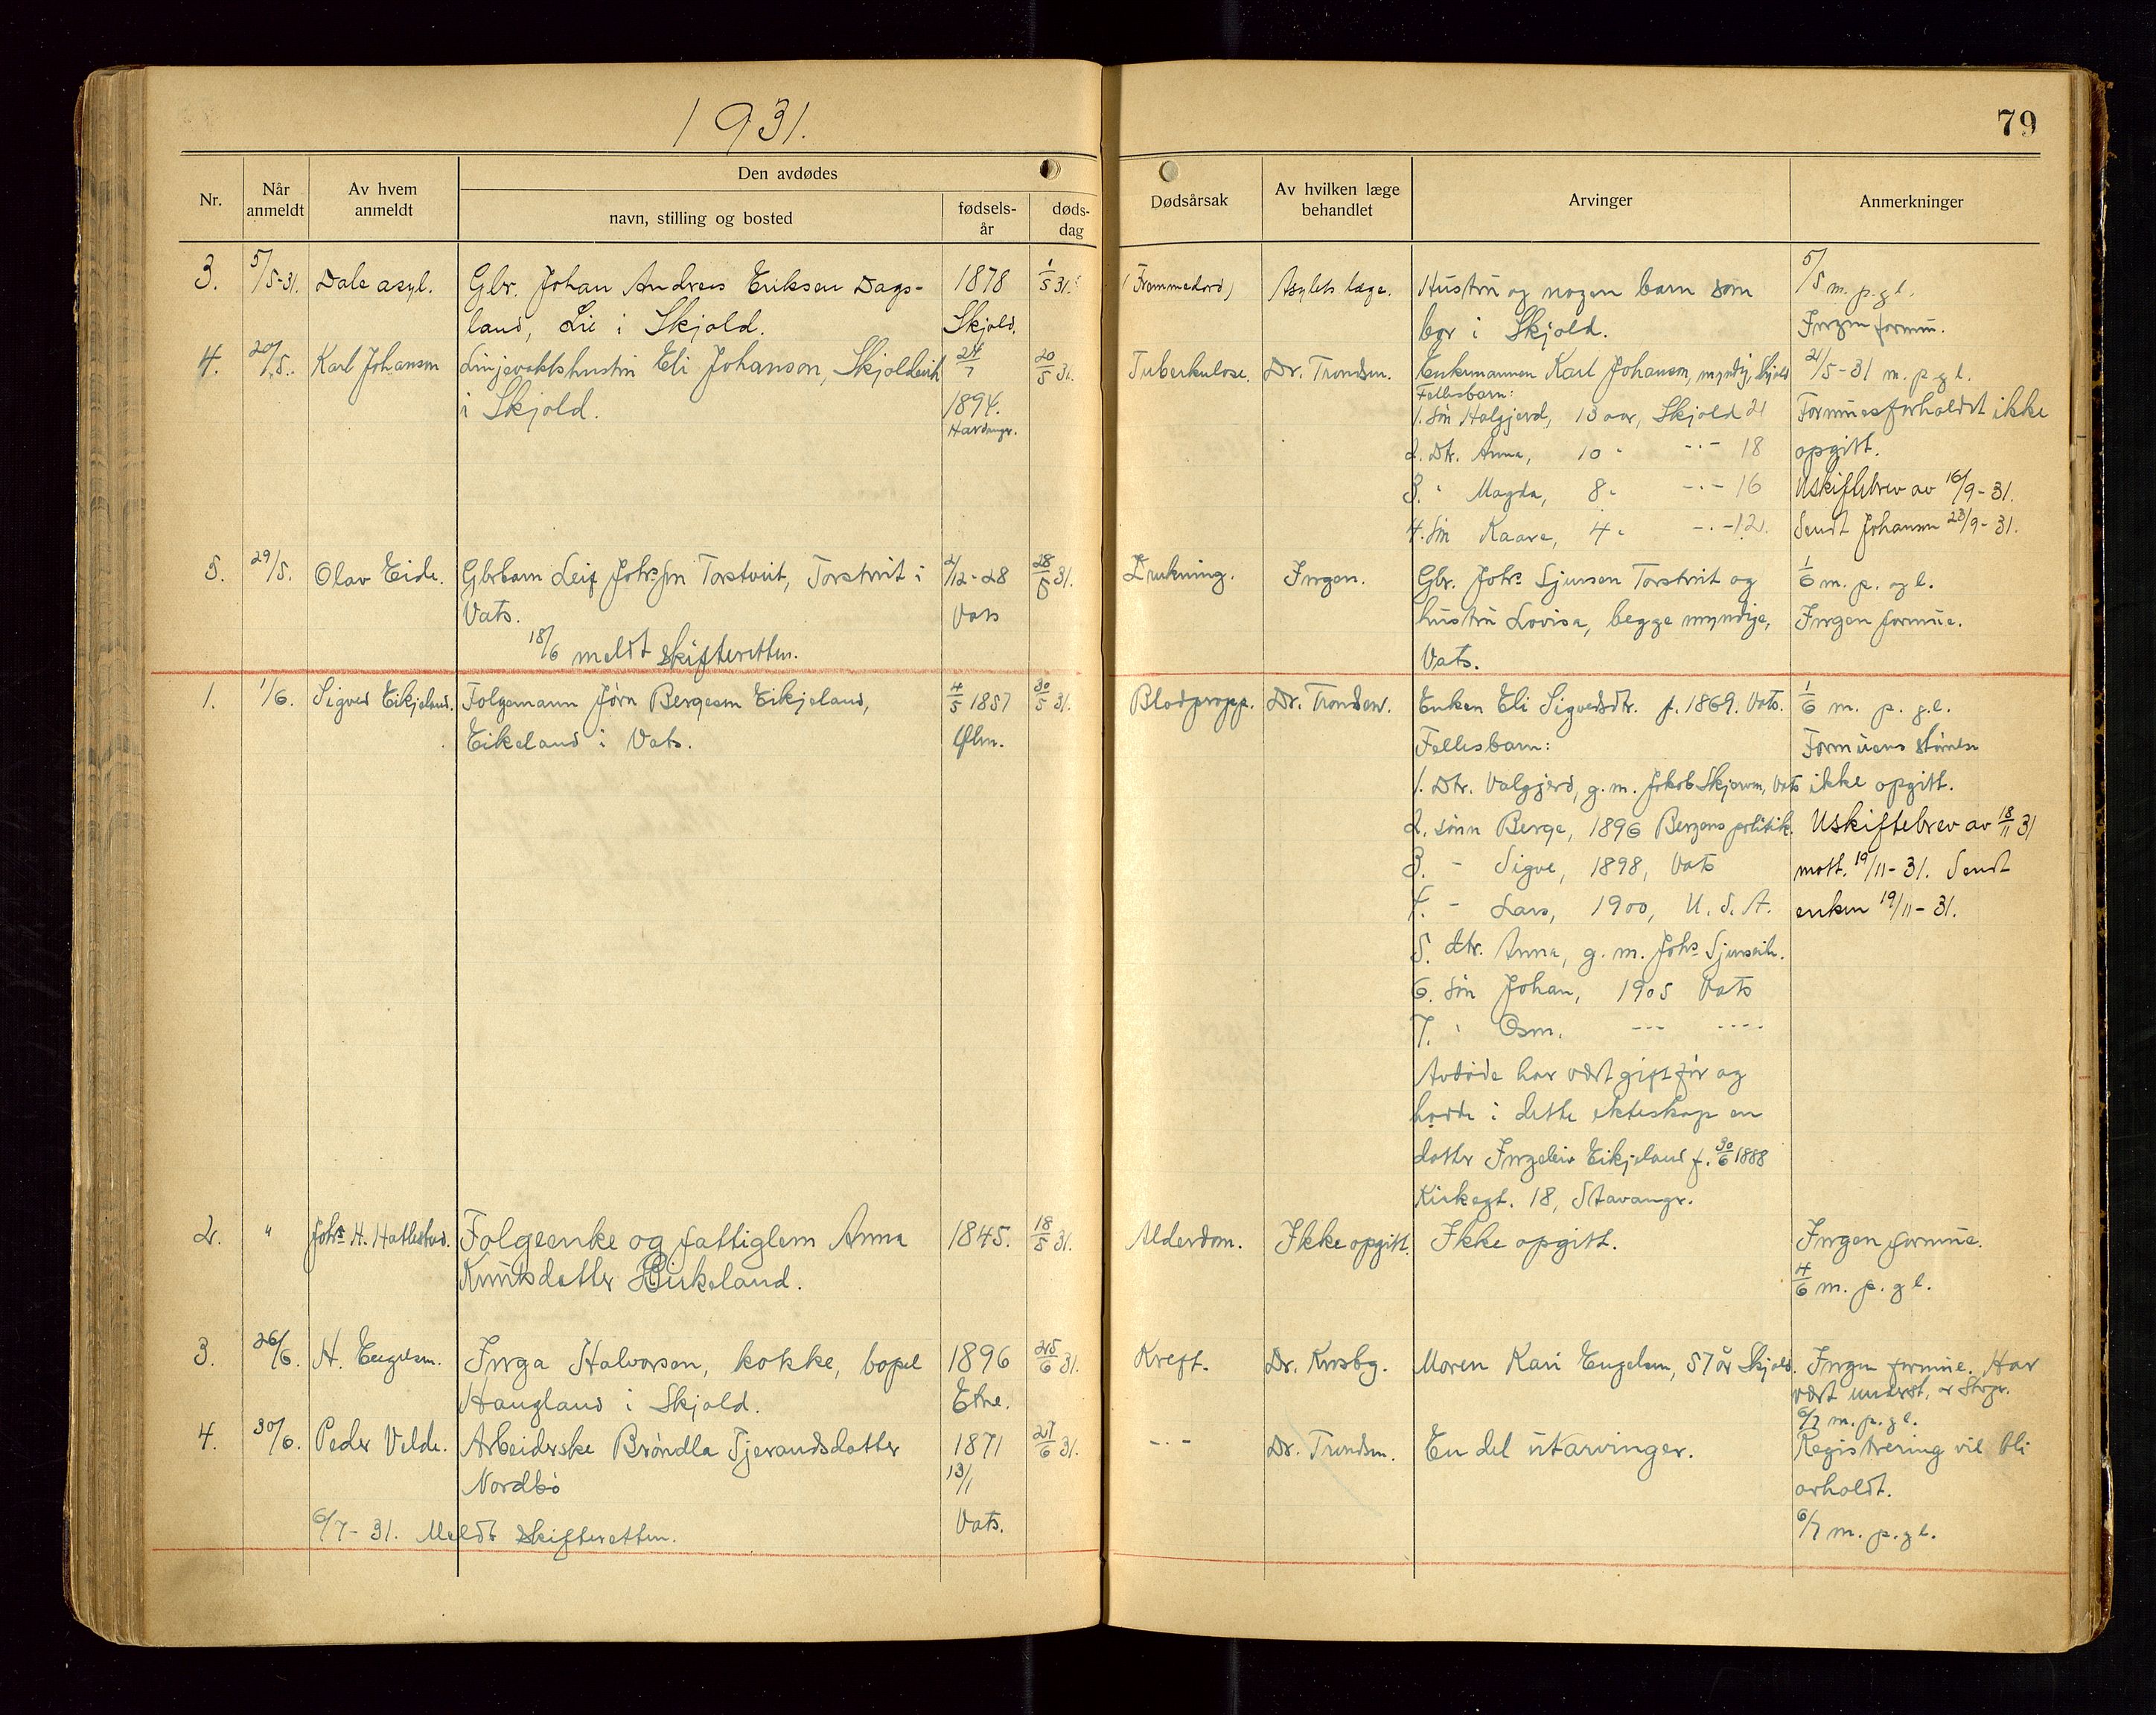 1931.
79
Nr.
Når anmeldt
Av hvem anmeldt
Den avdødes
navn, stilling og bosted
fødsels-år
døds-dag
Dødsårsak
Av hvilken læge behandlet
Arvinger
Anmerkninger
3. 5/5-31. Dale asyl. Gbr. Johan Andreas Eriksen Dags- 1878 1/5 31. Asylets læge. Hustru og nogen barn som 5/5 m. p. g l.
land, Lie i Skjold. Skjold. bor i Skjold. Ingen formu.
4. 20/5. Karl Johanson Linjevaktshustru Eli Johanson, Skjoldevik 24/7 20/5 31. Tuberkulose. Dr. Trondsen. Enkemannen Karl Johanson, myndig, Skjold 21/5-31 m. p. g l.
i Skjold. 1894. Fellesbarn:
Hardanger. 1. Søn Halgjerd, 13 aar, Skjold 21 Formuesforholdet ikke
2. Dtr. Anna, 10 " -"- 18 opgitt.
3. " Magda, 8 " -"- 16 Uskiftebrev av 16/9-31.
4. Søn Kaare, 4 " -"- 12. Sendt Johanson 23/9-31.
5. 29/5. Olav Eide. Gbrbarn Leif Johs Sjn Torstveit, Torstveit i 2/12-28 28/5 31. Drukning. Ingen. Gbr. Johs Sjursen Torstveit og 1/6 m. p. og l.
Vats. Vats hustru Lovisa, begge myndige, Ingen formue.
18/6 meldt skifteretten. Vats.
1. 1/6. Sigved Eikjeland. Folgemann Jørn Bergesen Eikjeland, 4/5 1857 30/5 31. Blodpropp. Dr. Trondsen. Enken Eli Sigvedsdtr. f. 1869. Vats. 1/6 m. p. g. l.
Eikeland i Vats. Ølen. Fellesbarn: Formuens størrelse
1. Dtr. Valgjerd, g. m. Jakob Skjerven, Vats ikke opgitt.
2. sønn Berge, 1896 Bergens politik. Uskiftebrev av 18/11 31
3. - Sigve, 1898, Vats mott. 19/11-31. Sendt
4. - Lars, 1900, U. S. A. enken 19/11-31.
5. dtr. Anna, g. m. Johs Sjurseike.
6. Søn Johan, 1905 Vats
7. " Osm. --- ----
Avdøde har vært gift før og
hadde i dette ekteskap en
datter Ingeleiv Eikjeland f. 30/6 1888
Kirkegt. 18, Stavanger.
2. " Johs H. Hatlestad. Folgeenke og fattiglem Anna 1845. 18/5 31. Alderdom. Ikke opgitt. Ikke opgitt. Ingen formue.
Knutsdatter Birkeland. 4/6 m. p. g l.
3. 26/6. H. Engelsen. Inga Halvorsen, kokke, bopel 1896 25/6 31. Kreft. Moren Kari Engelsen, 57 år Skjold. Ingen formue. Har
Haugland i Skjold. Etne. vært underst. av
6/7 m. p. g l.
4. 30/6. Peder Velde. Arbeiderske Brøndla Tjerandsdatter 1871 27/6 31. -"- Dr. Trondsen. En del utarvinger. Registrering vil bli
Nordbø 13/1 avholdt.
6/7-31. Meldt skifteretten. Vats. 6/7 m. p. g l.